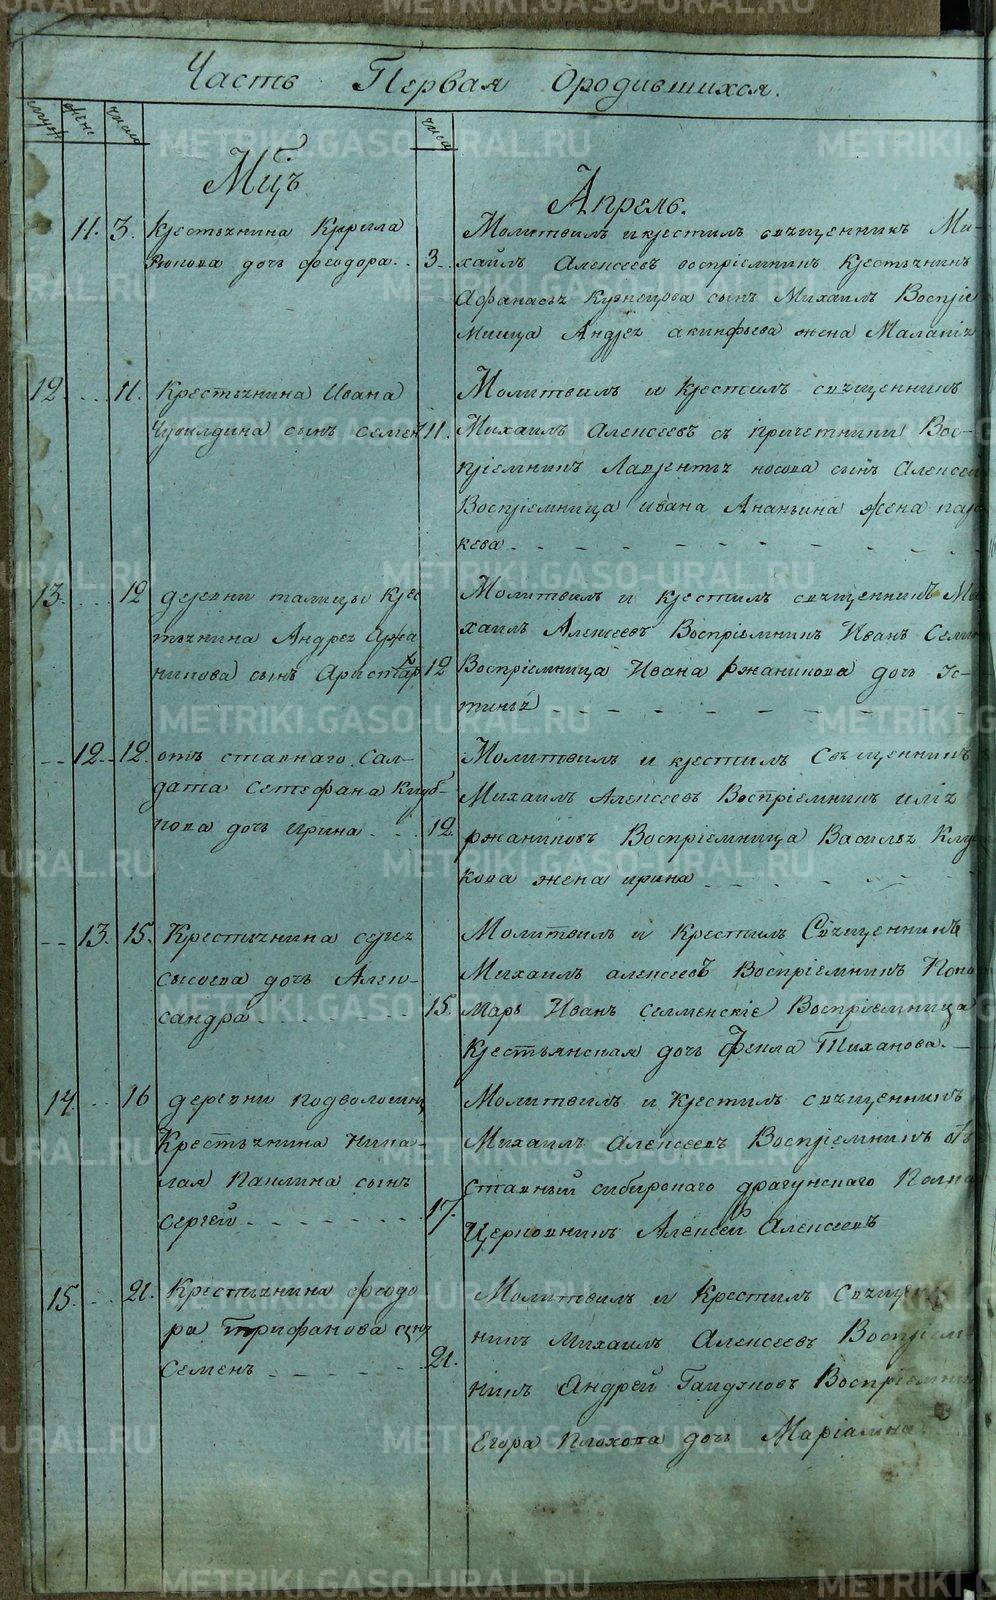 Часть Первая Ородившихся.
муж жен числа числа
Мцъ Апрель.
11. 3. Крестьянина Кирила
попова дочь феодора. . 3.
Молитвилъ икрестилъ священникъ Ми-
хаилъ Алексеевъ восприемникъ Крестьянинъ
Афанасья Кузнецова сынъ Михаилъ Воспрiе
мница Андрея акинфьева жена Маланiя
12. . . . 11. Крестьянина Ивана
сынъ семенъ 11.
Молитвилъ и Крестилъ священникъ
Михаилъ Алексеевъ съ причетники Вос-
прiемникъ Лаврентья носова сынъ Алексей
Воспрiемница ивана Ананьина жена пара
кева
13. . . . 12 деревни талицы крес
тьянина Андрея Ржа
никова сынъ Аристарх 12
Молитвилъ и крестилъ священникъ Ми
хаилъ Алексеевъ Воспрiемникъ Иванъ Семен
Воспрiемница Ивана Ржаникова дочь Ус-
тинья
12. 12. отъ ставнаго Сал-
дата Сетефана
дочь ирина . . . 12.
Молитвилъ и крестилъ Священникъ
Михаилъ Алексеевъ Воспрiемникъ илiя
ржаниковъ Воспрiемница Василья
кова жена ирина
13. 15. Крестьянина сергея
сысоева дочь Алек-
сандра 15.
Молитвилъ и Крестилъ Священникъ
Михаилъ алексеевъ Воспрiемникъ Поно
марь Иванъ Селменскiе Воспрiемница
Крестьянская дочь Фекла Тиханова.
14. . . 16 деревни подволошн
Крестьянина Ника-
лая Паклина сынъ
Сергей 17.
Молитвилъ и Крестилъ священникъ
Михаилъ Алексеевъ Воспрiемникъ отъ
ставный сибирскаго драгунскаго Полка
Церковникъ Алексей Алексеевъ
15. . . 21. Крестьянина феодо
ра трифанова сынъ
Семенъ 21.
Молитвилъ и Крестилъ Священ
никъ Михаилъ Алексеевъ Воспрiем
никъ Андрей Гайдуковъ Воспрiемни
Егора Плохова дочь Марiамна
METRIKI.GASO-URAL.RU